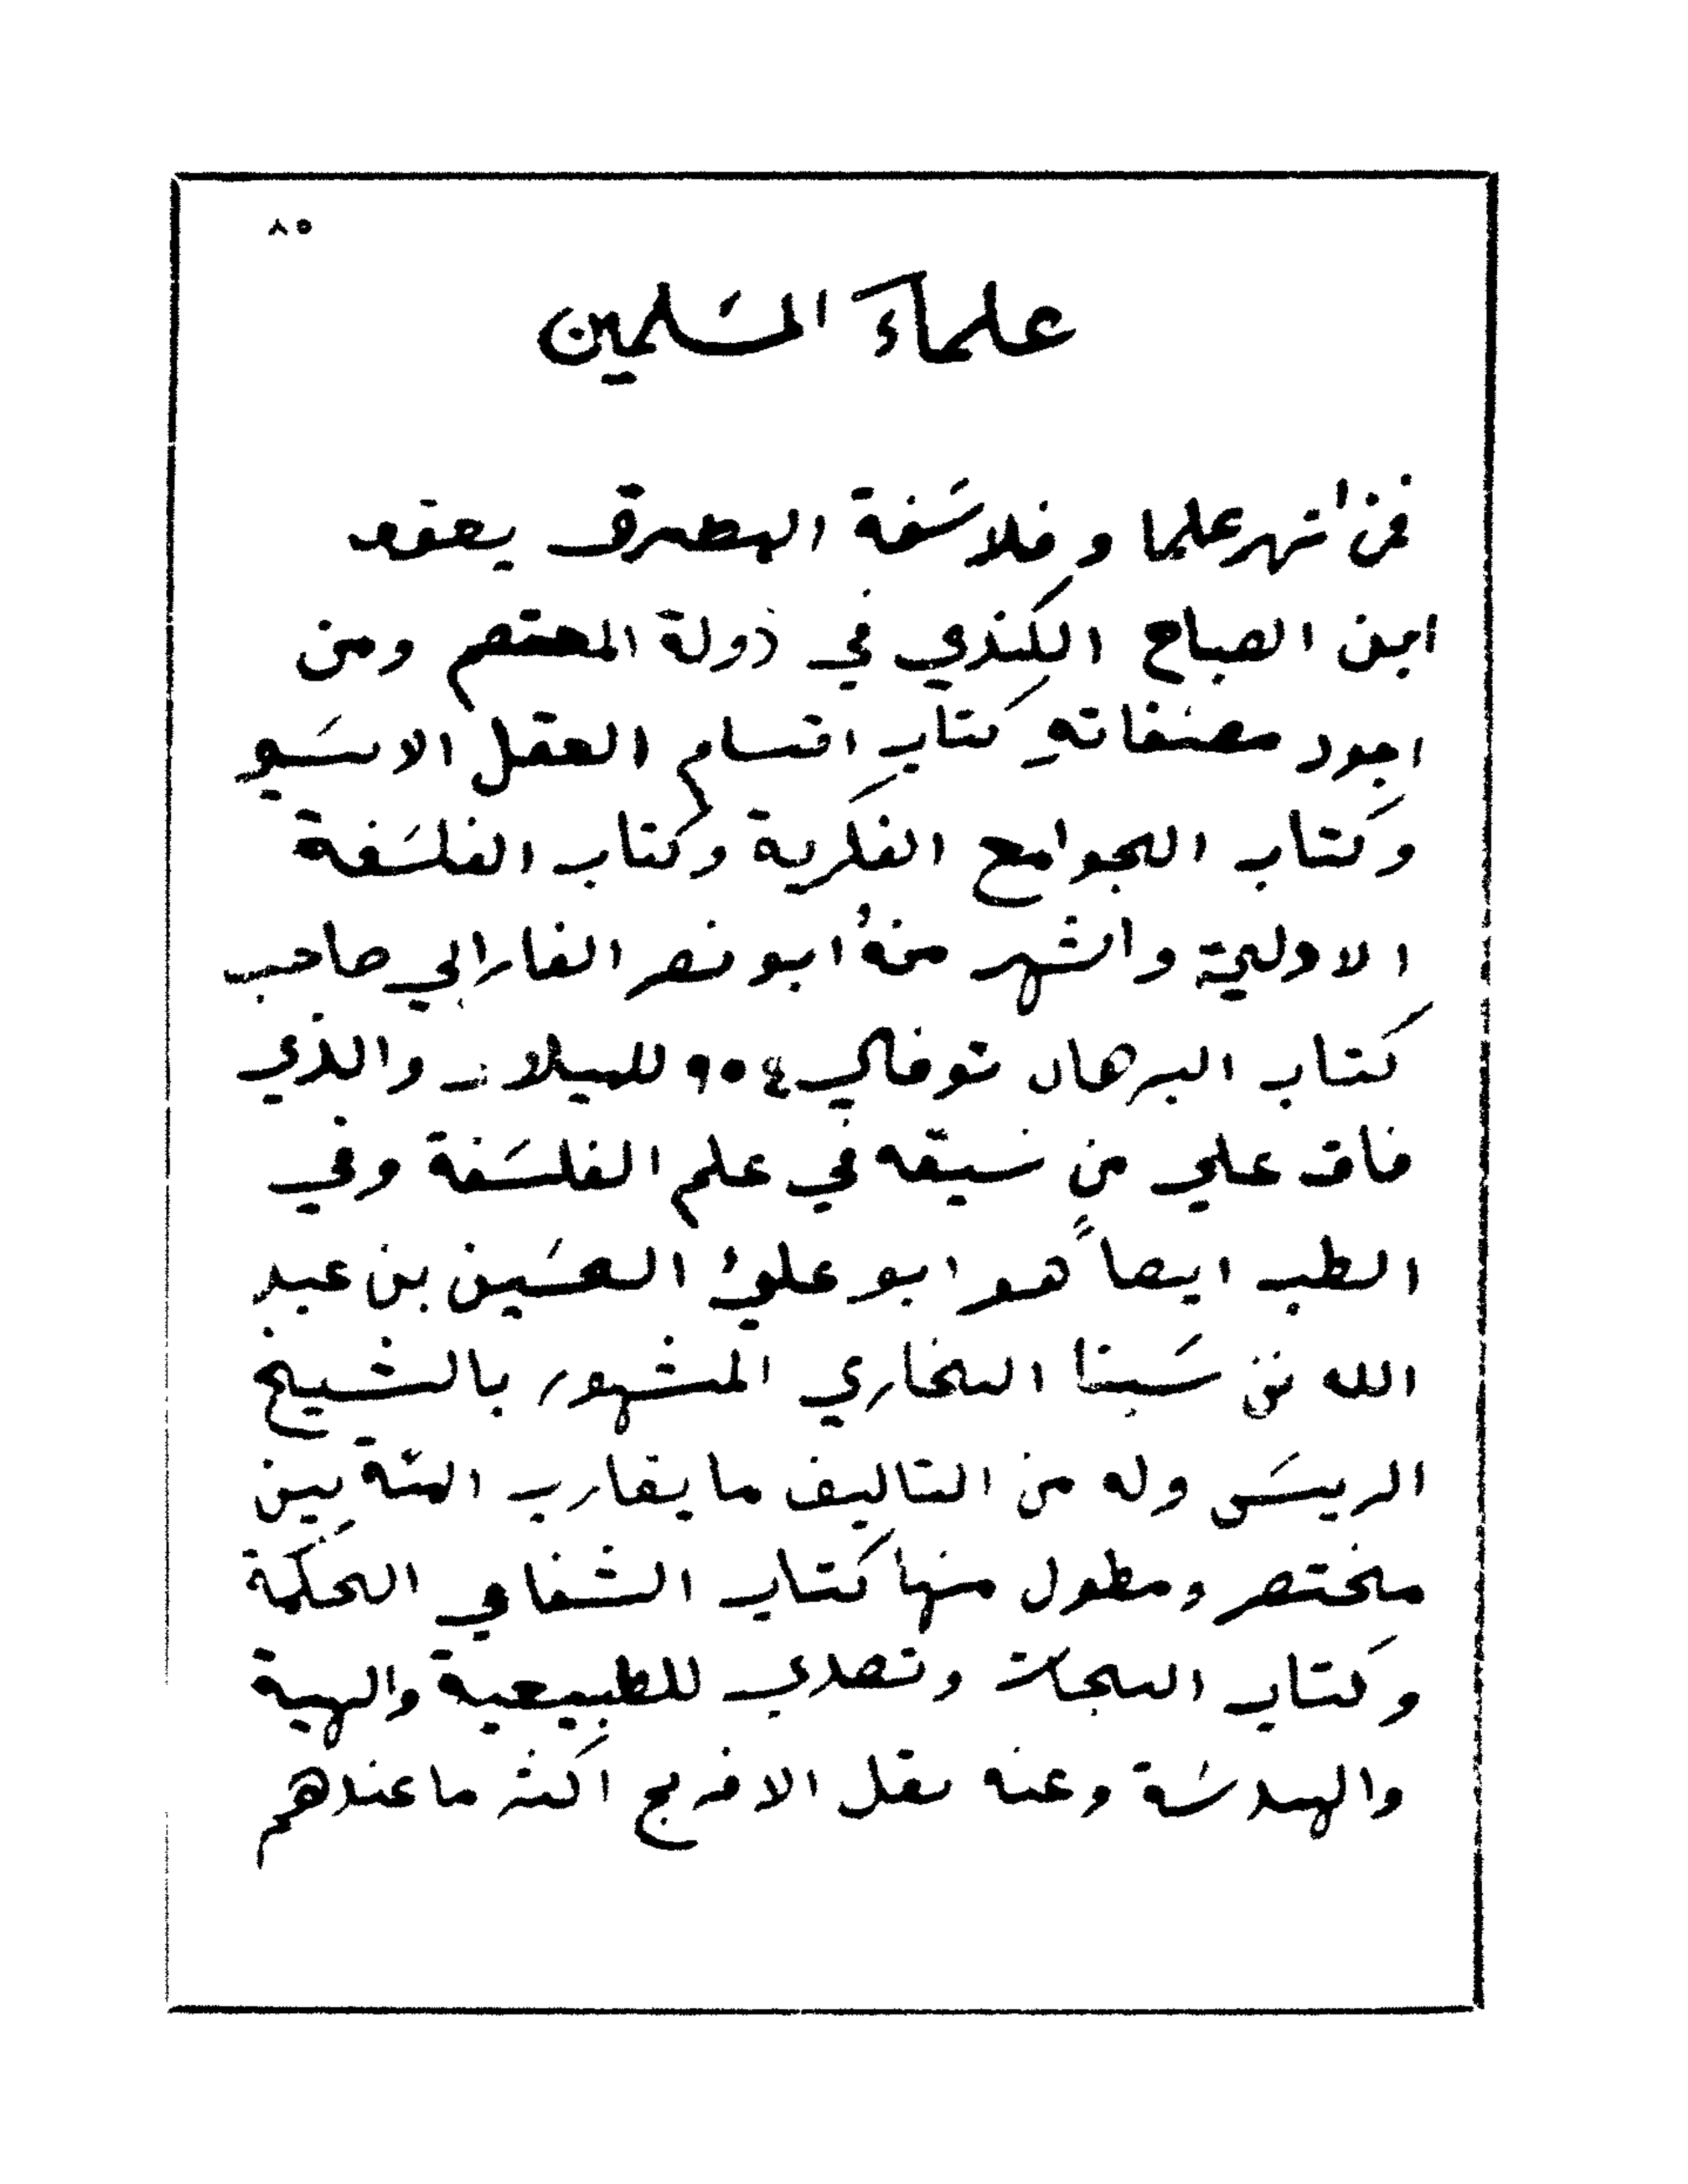 ٨٥
علماء المسلمين
فمن اشهر علما و فلاسفة البصرة يعقوب
ابن الصباح الكندي في دولة المعتصم ومن
اجود مصنفاته كتاب اقسام العقل الانسي
وكتاب الجوامع الفكرية وكتاب الفلسفة
الاولية واشهر منه ابو نصر الفارابي صاحب
كتاب البرهان توفي ٩٥٤ للميلاد والذي
فاق علي من سبقه في علم الفلسفة وفي
الطب ايضاً هو ابو علي الحسين بن عبد
الله بن سينا البخاري المشهور بالشيخ
الريس وله من التاليف ما يقارب المئة بين
مختصر ومطول منها كتاب الشفا في الحكمة
وكتاب النجاة وتصدي للطبيعية والهية
والهندسة وعنه نقل الافرنج اكثر ما عندهم